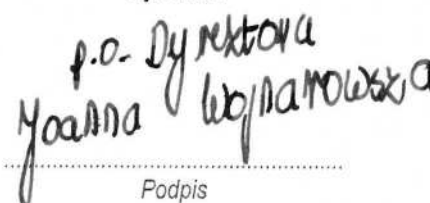 p.o. Dyrektora
Joanna Wojnarowska
Podpis